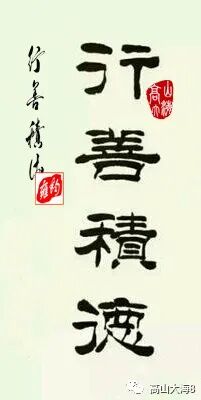 行善積德
行善積德
高山大海8